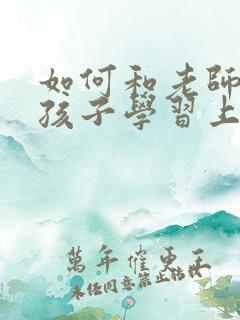 如何和老師
孩子學習上
萬年催更王
未经同意禁止转载